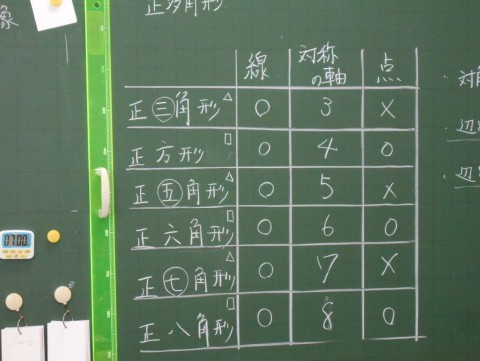 象
正多角形
線 対称の軸 点
正三角形 △ ○ 3 ×
正方形 □ ○ 4 ○
正五角形 △ ○ 5 ×
正六角形 □ ○ 6 ○
正七角形 △ ○ 7 ×
正八角形 □ ○ 8 ○
・対角
・辺
・辺
07:00